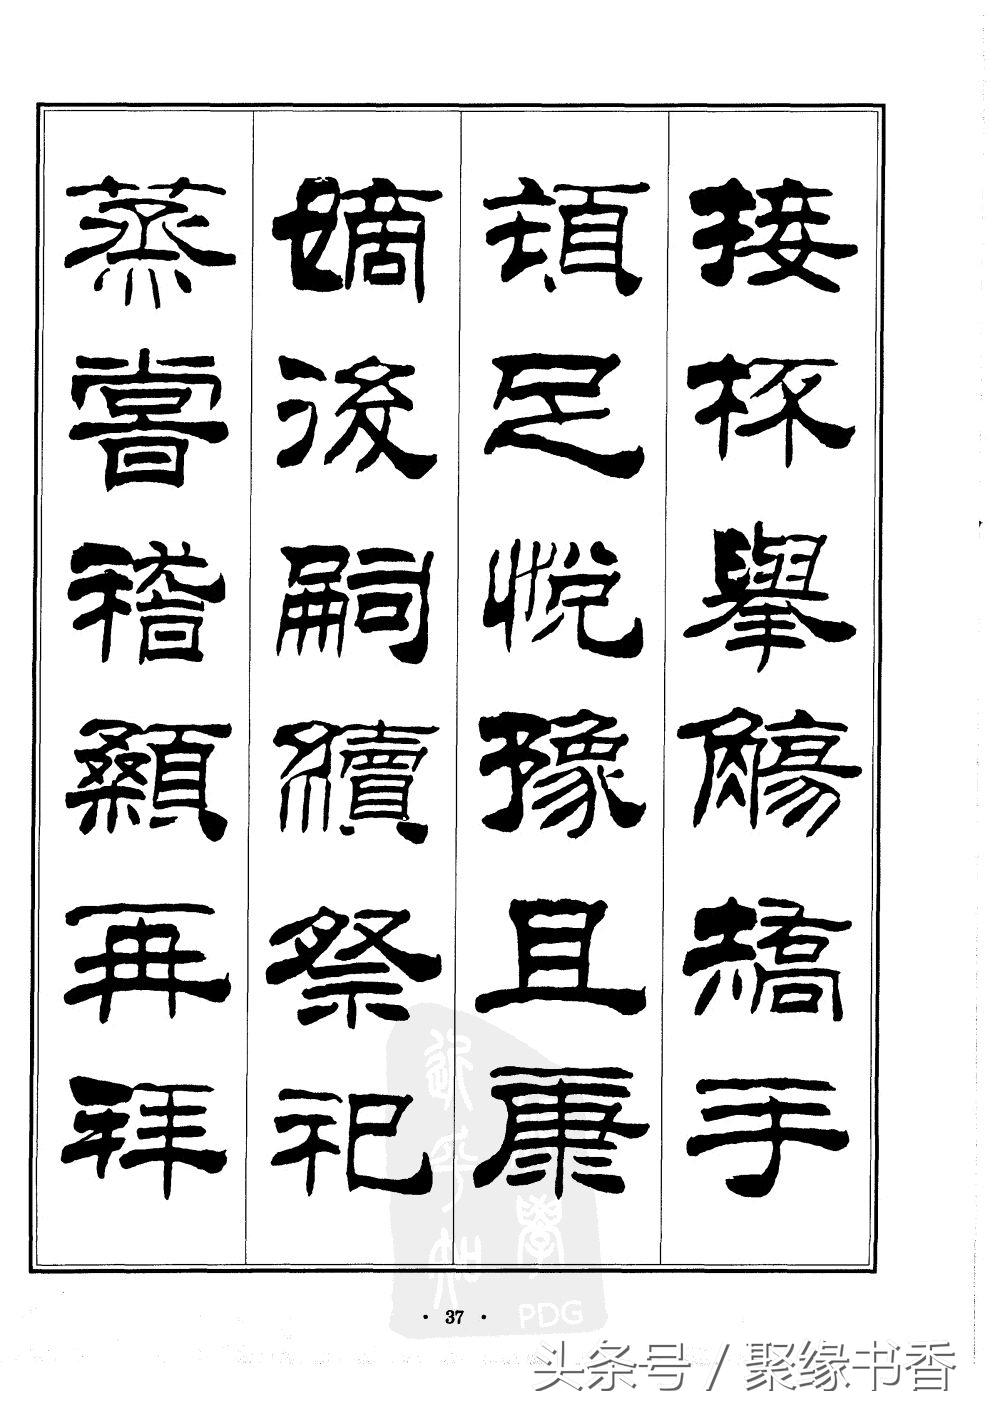 接杯舉觴矯手
頓足悅豫且康
嫡後嗣續祭祀
蒸嘗稽顙再拜
· 37 ·
PDG
头条号 / 聚缘书香